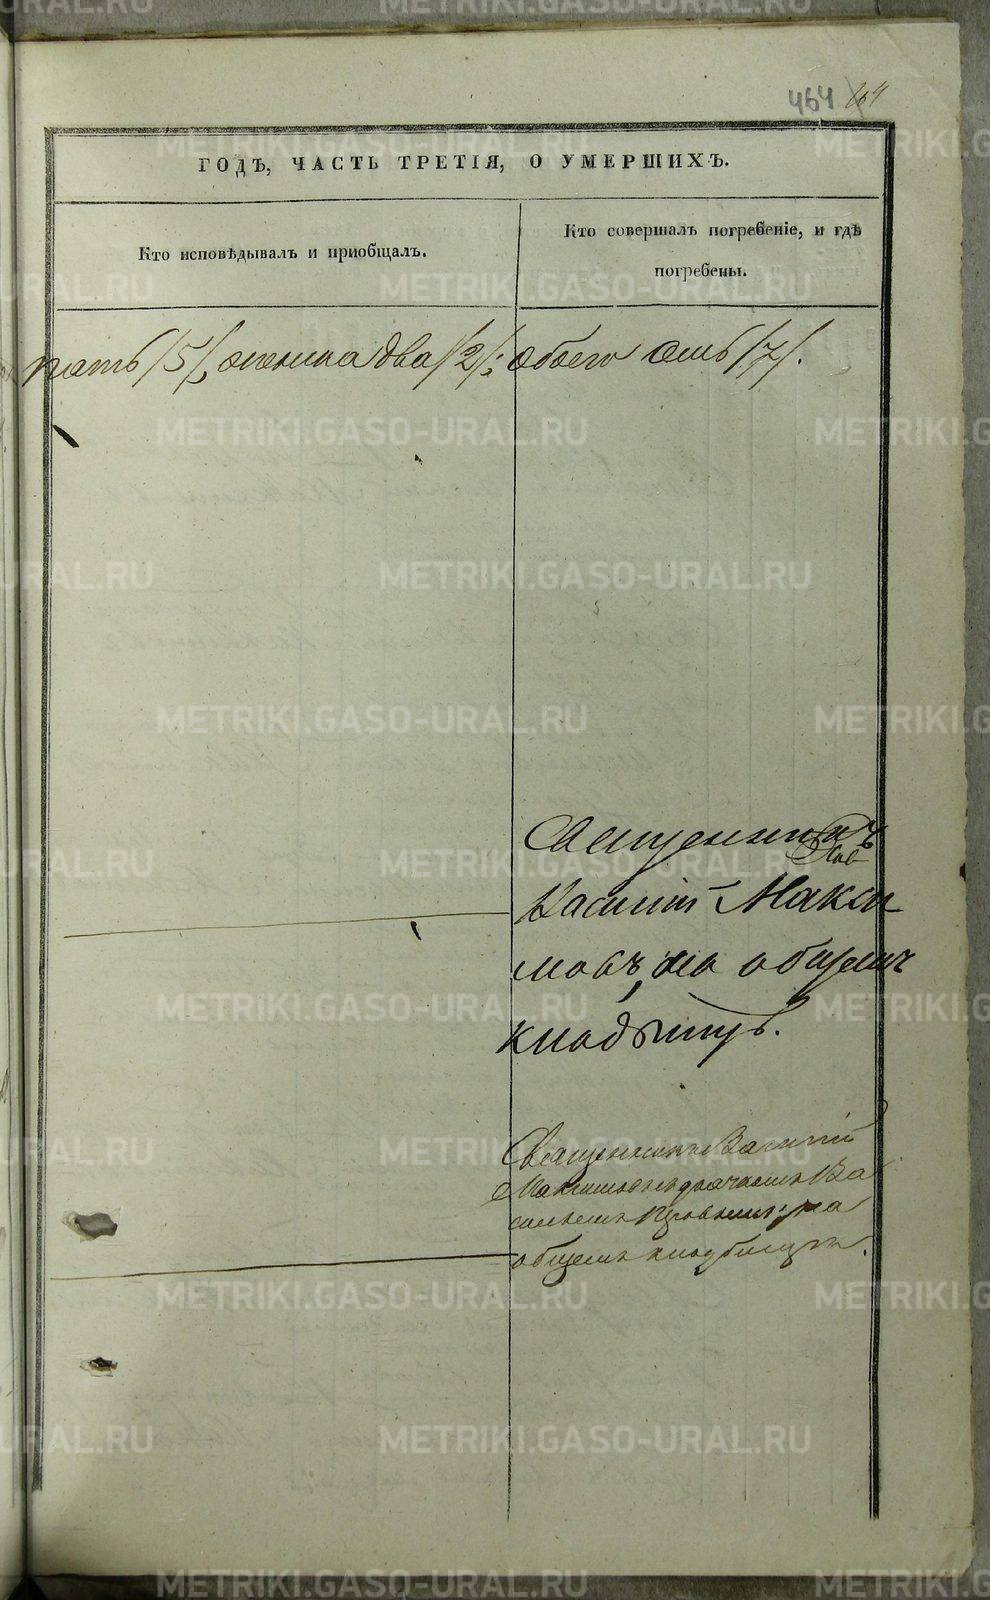 464 664
ГОДЪ, ЧАСТЬ ТРЕТІЯ, О УМЕРШИХЪ.
Кто исповѣдывалъ и пріобщалъ.
Кто совершалъ погребеніе, и гдѣ
погребены.
пять /5/, женска два /2/; обоего семь /7/.
Священникъ
Василій Макси
мовъ, на общемъ
кладбищѣ.
Священникъ Василій
Максимовъ съ дьячкомъ Ва
силіемъ на
общемъ кладбищѣ.
METRIKI.GASO-URAL.RU